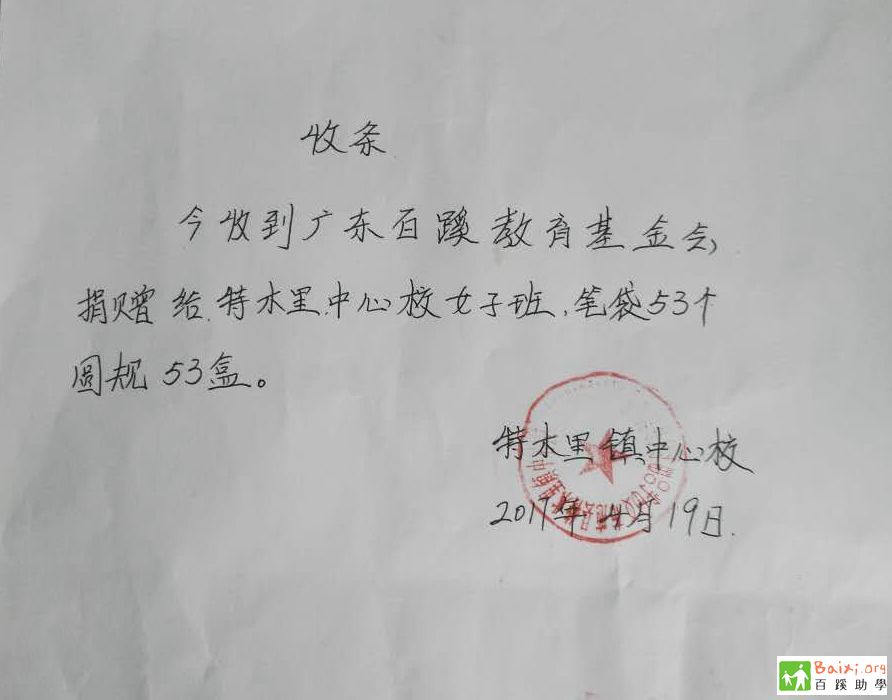 收条
今收到广东百蹊教育基金会,
捐赠给特木里中心校女子班,笔袋53个
圆规53盒。
特木里镇中心校
2017年4月19日.
Baixi.org
百蹊助學